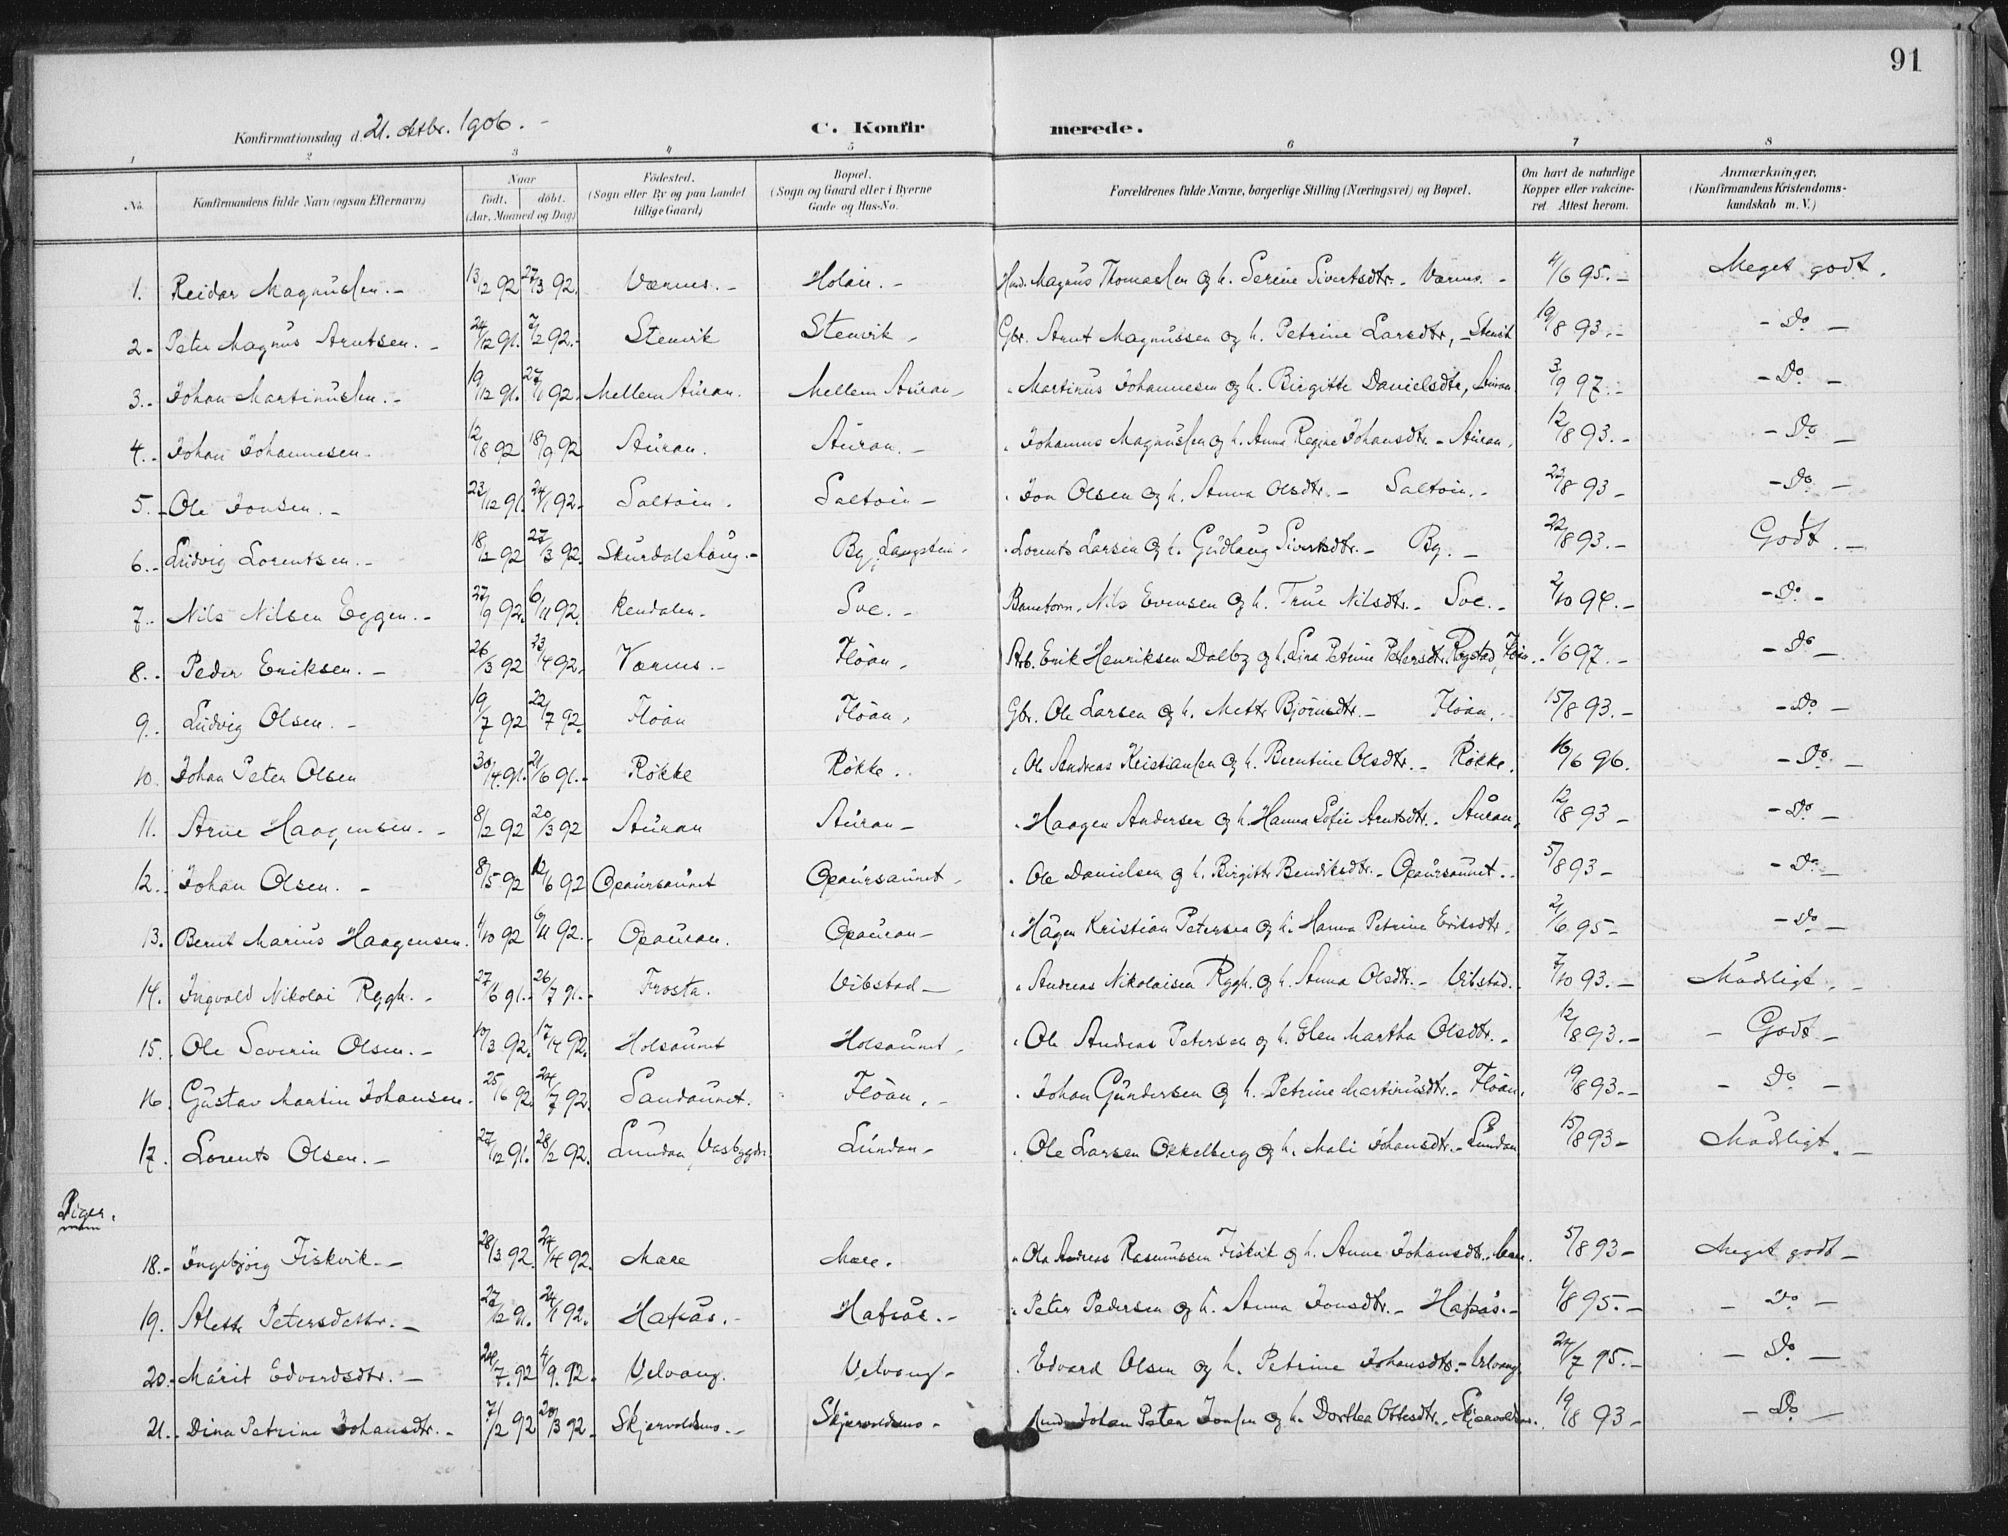 91
Konfirmationsdag d. 21. oktbr. 1906. -
C. Konfirmerede.
1 2 3 4 5 6 7 8
No. Konfirmandens fulde Navn (ogsaa Efternavn) Naar født, døbt. (Aar, Maaned og Dag) Fødested. (Sogn eller By og paa Landet tillige Gaard) Bopæl. (Sogn og Gaard eller i Byerne Gade og Hus-No. Forældrenes fulde Navne, borgerlige Stilling (Næringsvei) og Bopæl. Om havt de naturlige Kopper eller vakcineret. Attest herom. Anmærkninger, (Konfirmandens Kristendomskundskab m. V.)
1. Reidar Magnussen. - 13/2 92 27/3 92. Værnes. - Holan. - Magnus Thomassen og h. Serine Sivertsdtr. - Værnes. - 4/6 95. - Meget godt.
2. Peter Magnus Arntsen. - 24/12 91. 7/2 92. - Stenvik Stenvik - Gbr. Arnt Magnussen og h. Petrine Larsdtr, - Stenvik 19/8 93. - - Do -
3. Johan Martinussen. - 19/12 91. 27/1 92. Mellem Auran. Mellem Auran - Martinus Johannesen og h. Birgitte Danielsdtr, Auran. 3/9 97. - - Do -
4. Johan Johannesen - 12/8 92 18/9 92 Auran. Auran. - Johannes Magnussen og h. Anna Regine Johansdtr - Auran. 12/8 93. - - Do -
5. Ole Jonsen. - 23/12 91. 24/1 92. Saltoin. Saltoin - Jon Olsen og h. Anna Olsdtr. - Saltoin. - 22/8 93 - - Do -
6. Ludvig Lorentsen. - 18/2 92 27/3 92. Skurdalshaug. - By, Langstein. Lorents Larsen og h. Gudlaug Sivertsdtr. - By. - 22/8 93. - Godt. -
7. Nils Nilsen Eggen. - 27/9 92. 6/11 92. Rendalen. Sve. - Nils Evensen og h. True Nilsdtr. - Sve. - 2/10 94. - - Do -
8. Peder Eriksen. - 26/3 92 23/4 92. Værnes. - Floan. Arb. Erik Henriksen Dalby og h. Lina Petrine Petersdtr. Rygstad, Floan. 1/6 97. - - Do -
9. Ludvig Olsen. - 19/7 92 22/7 92. Floan Floan. Gbr. Ole Larsen og h. Mette Bjørnsdtr. - Floan. 15/8 93. - - Do -
10. Johan Peter Olsen 30/4 91. 21/6 91. - Røkke Røkke. Ole Andreas Kristiansen og h. Berntine Olsdtr. - Røkke. 16/6 96. - Do. -
11. Arne Haagensen. - 8/2 92 20/3 92 Auran Auran - Haagen Andersen og h. Hanna Sofie Arntsdtr. Auran. 12/8 93 - - Do -
12. Johan Olsen. - 8/5 92 12/6 92 Opaursaunet Opaursaunet - Ole Danielsen og h. Birgitte Bendiksdtr. - Opaursaunet. - 5/8 93 - - Do -
13. Bernt Marius Haagensen. 1/10 92 6/11 92. Opauran. Opauran - Hågen Kristian Petersen og h. Hanna Petrine Eriksdtr. 2/6 95 - - Do -
14. Ingvald Nikolai Rygh. - 27/6 91. 26/7 91. - Frosta. Vibstad - Andreas Nikolaisen Rygh og h. Anna Olsdtr. - Vibstad. 7/10 93. - Mådligt. -
15. Ole Severin Olsen. - 17/3 92. 17/4 92. Holsaunet Holsaunet. Ole Andreas Petersen og h. Elen Martha Olsdtr. - 12/8 93. - - Godt -
16. Gustav Martin Johansen. 25/6 92. 24/7 92. Sandaunet. Floan. - Johan Gundersen og h. Petrine Martinusdtr. - Floan. 19/8 93. - - Do -
17. Lorents Olsen. - 27/12 91. 28/2 92. Lundan Vasbygden Lundan - Ole Larsen Okkelberg og h. Mali Johansdtr. - Lundan 15/8 93 - Mådligt. -
Piger.
18. - Ingebjørg Fiskvik. - 28/3 92. 24/4 92. Mære Mære. Ola Andreas Rasmussen Fiskvik og h. Anne Johansdtr. 5/8 93 - Meget godt -
19. Alette Petersdatter. - 27/12 91. 24/1 92. Hafsås. - Hafsås. - Peter Pedersen og h. Anna Jonsdtr. - Hafsås. - 1/8 95. - - Do -
20. Marit Edvardsdtr. - 24/7. 92 4/9. 92. Velvang. Velvang - Edvard Olsen og h. Petrine Johansdtr. - Velvang. 24/7 95. - - Do -
21. Dina Petrine Johansdtr. - 71/2 92 20/3 92 - Skjervoldsmo. - Skjervoldsmo - Johan Peter Jonsen og h. Dorthea Ottesdtr. - Skjervoldsmo. 19/8 93 - - Do -